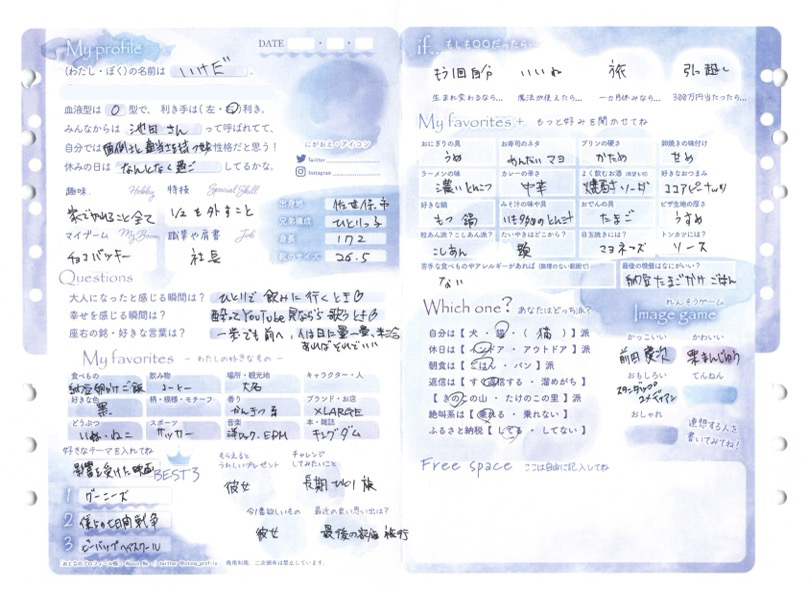 My profile
DATE
(わたし・ぼく)の名前は いけだ 。
血液型は O 型で、利き手は(左・右)利き。
みんなからは 池田さん って呼ばれてて、
自分では 面倒さと適当さを持つ 性格だと思う!
休みの日は なんとなく過ご してるかな。
にがおえ・アイコン
Twitter
Instagram
趣味 Hobby 特技 Special Skill
家でやれること全て
マイブーム My Boom 職業や肩書 Job
チョコバッキー 社長
出身地 佐世保市
兄弟構成 ひとりっ子
身長 172
靴のサイズ 26.5
Questions
大人になったと感じる瞬間は? ひとりで飲みに行くとき
幸せを感じる瞬間は? 酔ってYouTube見ながら歌うとき
座右の銘・好きな言葉は? 一歩でも前へ
My favorites ― わたしの好きなもの ―
食べもの 飲み物 場所・観光地 キャラクター・人
納豆卵かけご飯 コーヒー 大名
好きな色 柄・模様・モチーフ 香り ブランド・お店
黒 かんきつ系 XLARGE
どうぶつ スポーツ 音楽 本・雑誌
いぬ・ねこ サッカー 洋ロック・EDM キングダム
好きなテーマを入れてね
影響を受けた映画 BEST 3
1 グーニーズ
2 僕らの七日間戦争
3 ビーバップハイスクール
もらえると うれしいプレゼント
彼女
チャレンジ してみたいこと
長期ひとり旅
今1番欲しいもの 最近の良い思い出は?
彼女
if... もしも〇〇だったら
もう1回自分 いいね 旅 引っ越し
生まれ変わるなら… 魔法が使えたら… 一ヵ月休みなら… 300万円当たったら…
My favorites+ もっと好みを聞かせてね
おにぎりの具 お寿司のネタ プリンの硬さ 卵焼きの味付
うめ めんたいマヨ かため 甘め
ラーメンの味 カレーの辛さ よく飲むお酒 好きなおつまみ
濃いとんこつ 中辛 焼酎ソーダ ココアピーナッツ
好きな鍋 みそ汁の味や具 おでんの具 ピザ生地の厚さ
もつ鍋 たまご うすめ
粒あん派?こしあん派? たいやきはどこから? 目玉焼きには? トンカツには?
こしあん 頭 マヨネーズ ソース
苦手な食べものやアレルギーがあれば(無理のない範囲で) 最後の晩餐はなにがいい?
ない 納豆たまごかけごはん
Which one? あなたはどっち派?
自分は【 犬・猫・( 猫 )】派
休日は【 インドア・アウトドア 】派
朝食は【 ごはん・パン 】派
返信は【 すぐ返信する・溜めがち 】
【 きのこの山・たけのこの里 】派
絶叫系は【 乗れる・乗れない 】
ふるさと納税【 してる・してない 】
れんそうゲーム
Image game
かっこいい かわいい
前田慶次 栗まんじゅう
おもしろい てんねん
スタンダップコメディアン
おしゃれ
連想する人を
書いてみてね!
Free space ここは自由に記入してね